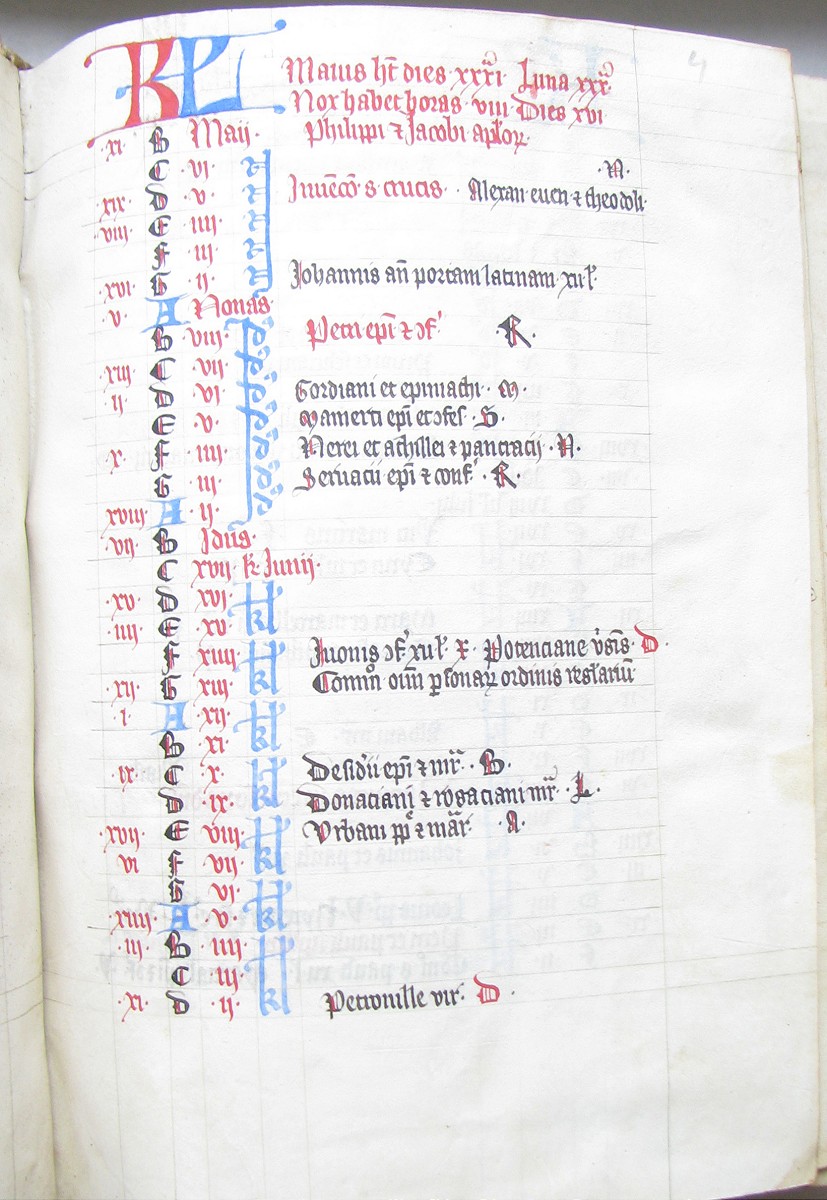 KL Maius ht dies xxxi Luna xxx
Nox habet horas viii Dies xvi
xi B Maii Philippi ⁊ Jacobi aplorꝝ
C vi N
xix D v Inuēcō s crucis Alexan euen ⁊ theodoli
viii E iiii
F iii
xvi G ii Johannis an portam latinam xii l
v A Nonas
B viii Petri epi ⁊ ɔf R
xiii C vii
ii D vi Gordiani et epimachi M
E v Mamerti epi et ɔfes S
x F iiii Nerei et achillei ⁊ pancracii N
G iii Seruacii epi ⁊ conf R
xviii A ii
vii B Idus
C xvii kl Junii
xv D xvi kl
iiii E xv
F xiiii kl Iuonis ɔf xii l X Potenciane v̓gīs D
xii G xiii Comm̄ oīm ꝑsonarꝝ ordinis
i A xii kl
B xi
ix C x kl Desiderii epi ⁊ mr B
D ix Donaciani ⁊ rogaciani mr L
xvii E viii kl Vrbani pp ⁊ mar A
vi F vii
G vi kl
xiiii A v
iii B iiii kl
C iii
xi D ii kl Petronille vir D
4